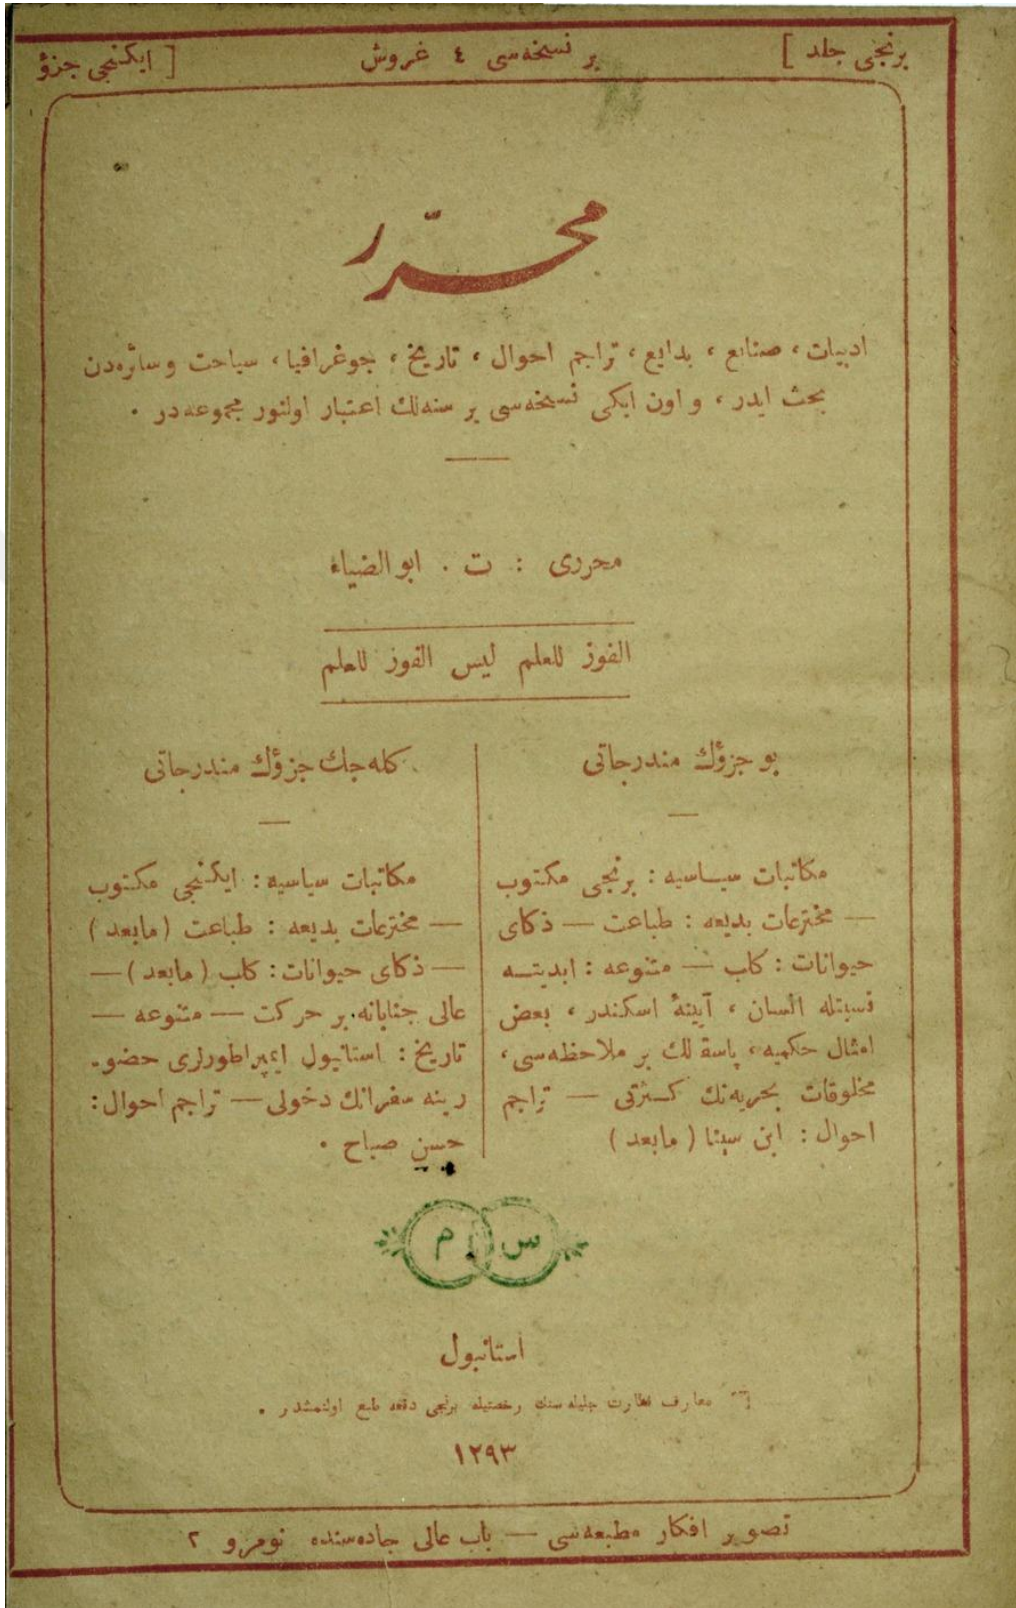 برنجی جلد ] بر نسخه‌سی ٤ غروش [ ایکنجی جزؤ
محرّر
ادبیات، صنایع، بدایع، تراجم احوال، تاریخ، جوغرافیا، سیاحت وسائره‌دن
بحث ایدر، و اون ایکی نسخه‌سی بر سنه‌لك اعتبار اولنور مجموعه‌در .
محرری : ت . ابوالضیاء
الفوز للعلم لیس الفوز للعلم
بو جزؤك مندرجاتی
مكاتبات سیاسیه : برنجی مكتوب
— مخترعات بدیعه : طباعت — ذكای
حیوانات : كلب — متنوعه : ابدیتـه
نسبتله انسان ، آیینۀ اسكندر ، بعض
امثال حكمیه، پاسقـالك بر ملاحظه‌سی،
مخلوقات بحریه‌نك كـثرتی — تراجم
احوال : ابن سینا ( مابعد )
كله‌جك جزؤك مندرجاتی
مكاتبات سیاسیه : ایكنجی مكتوب
— مخترعات بدیعه : طباعت (مابعد)
— ذكای حیوانات: كلب (مابعد) —
عالی جنابانه بر حركت — متنوعه —
تاریخ : استانبول ایمپراطورلری حضو-
رینه سفرانك دخولی — تراجم احوال:
حسن صباح .
س م
استانبول
معارف نظارت جلیله‌سنك رخصتیله برنجی دفعه طبع اولنمشدر .
١٢٩٣
تصویر افكار مطبعه‌سی — باب عالی جاده‌سنده نومرو ٢